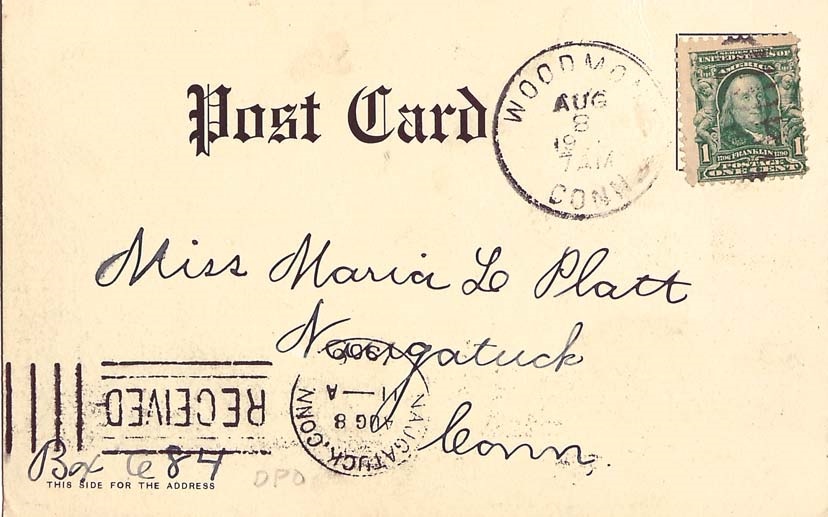 Post Card
WOODMON
AUG
8
19
7 AM
CONN
SERIES 1902
UNITED STATES OF
AMERICA
1706 FRANKLIN 1790
1 1
POSTAGE
ONE CENT
Miss Maria L Platt
Naugatuck
Conn.
RECEIVED
NAUGATUCK, CONN
AUG 8
11—A
Box 684
THIS SIDE FOR THE ADDRESS
DPO